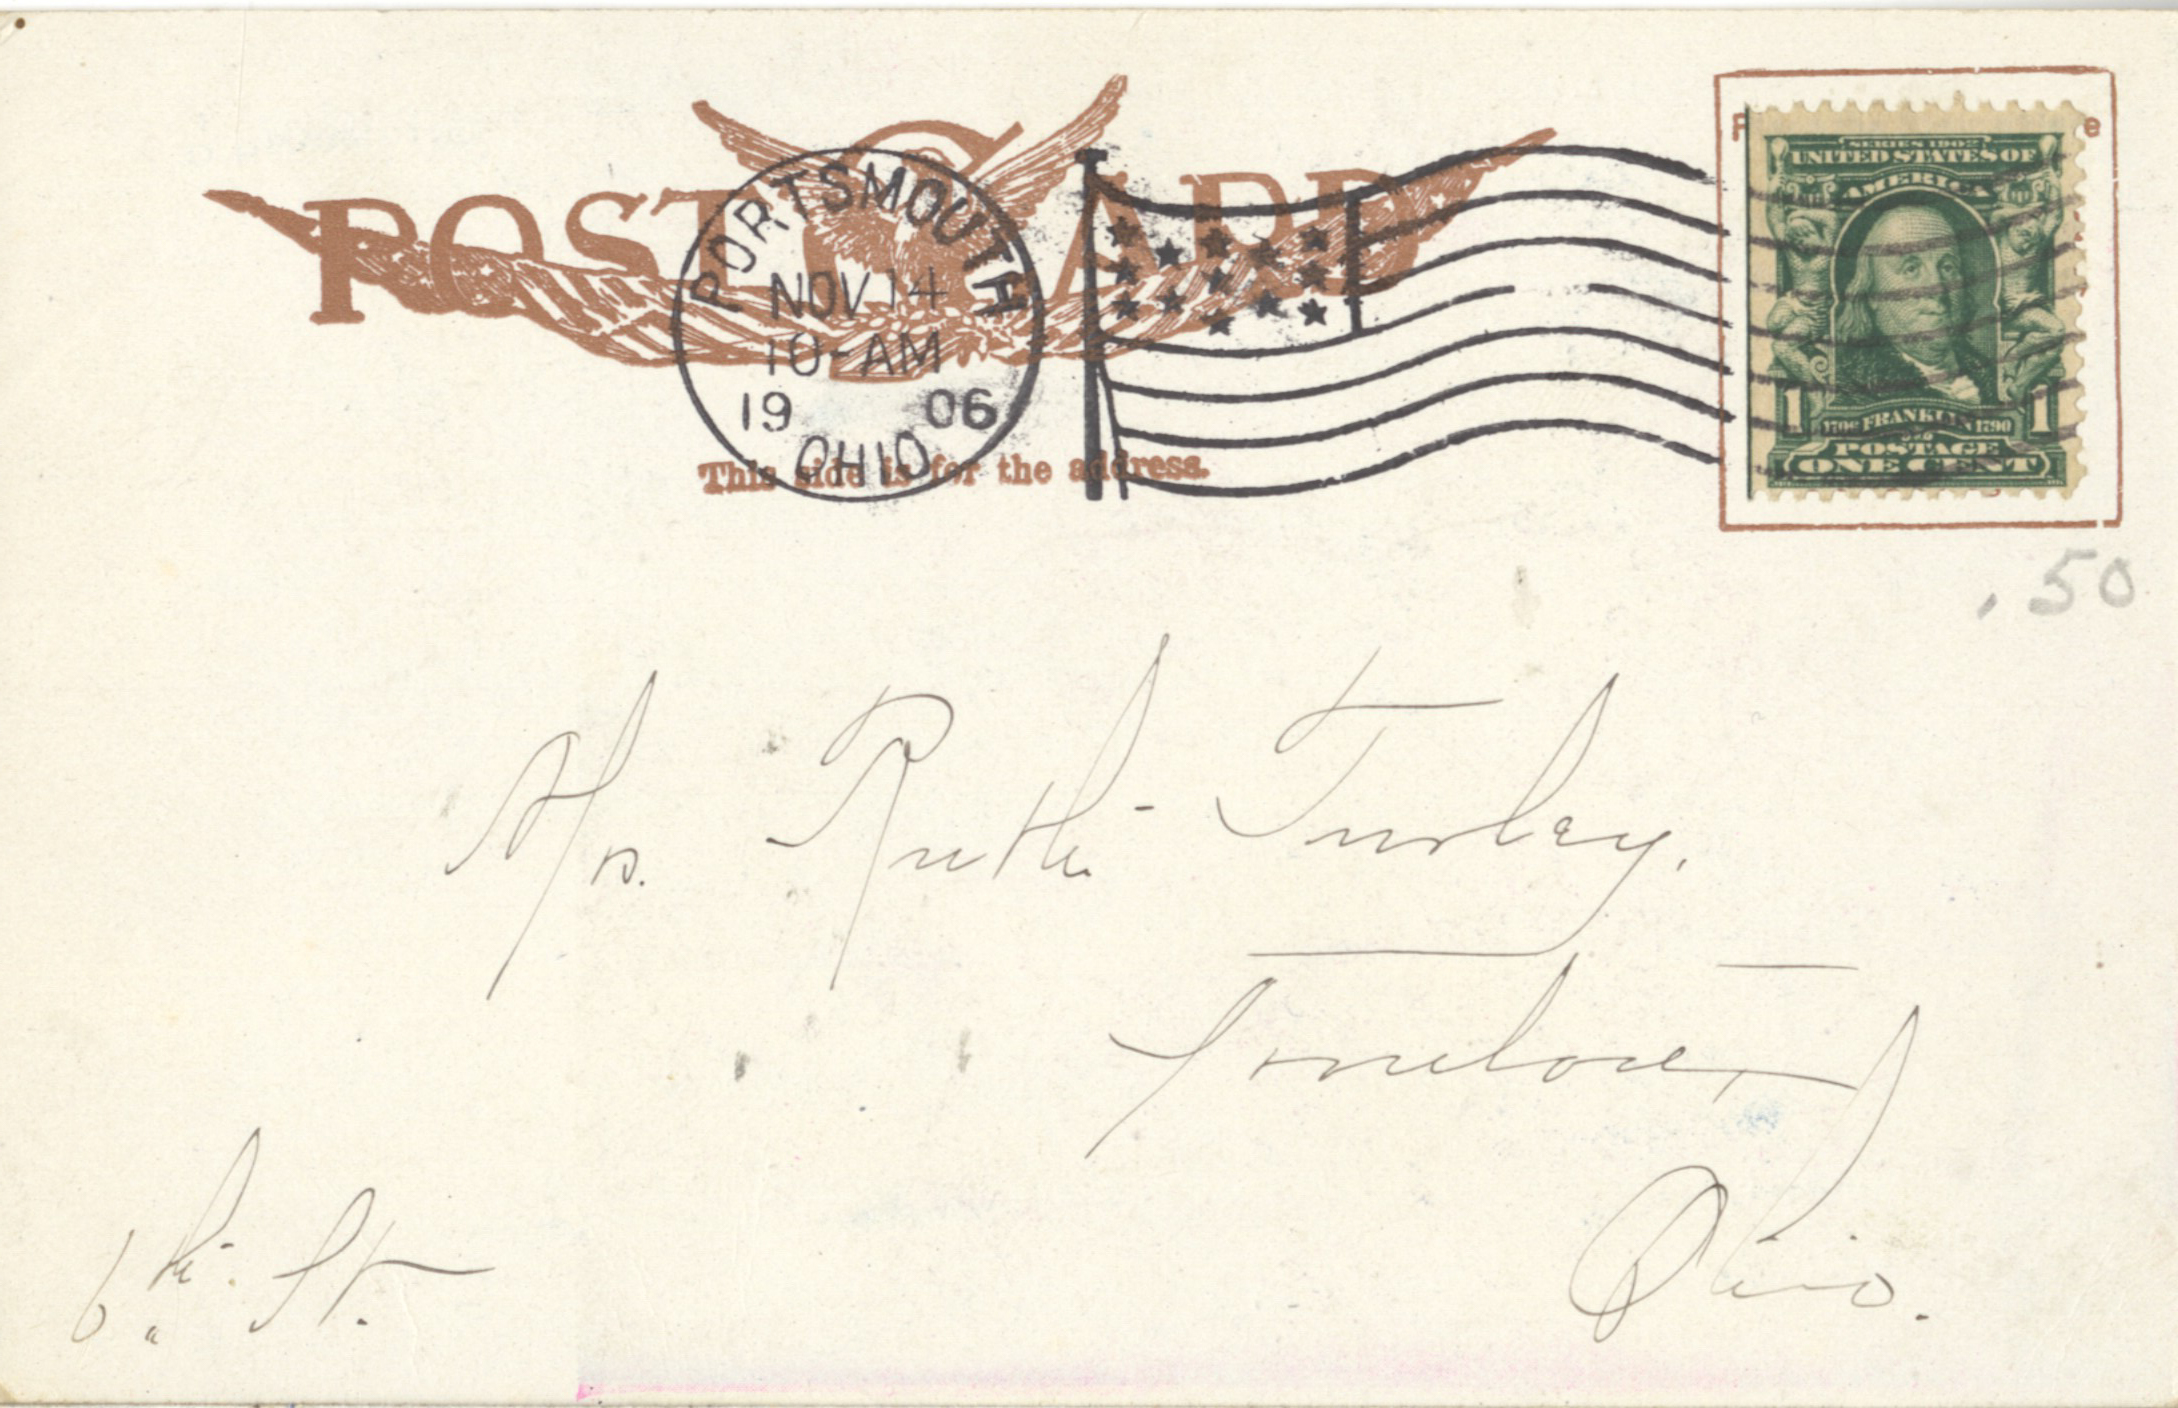 POST CARD
PORTSMOUTH
NOV 14
10-AM
19 06
OHIO
This side is for the address.
SERIES 1902
UNITED STATES OF
AMERICA
1 1706 FRANKLIN 1790 1
POSTAGE
ONE CENT
.50
Mrs. Ruth Turley,
Ironton,
Ohio.
6th St.